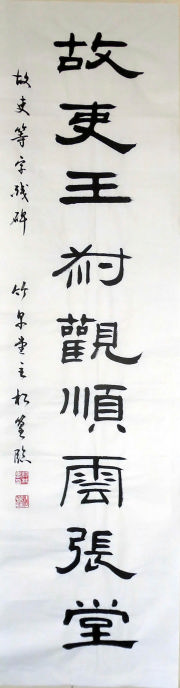 故吏王觀順雲張堂
故吏等字残碑 竹堂主松臨